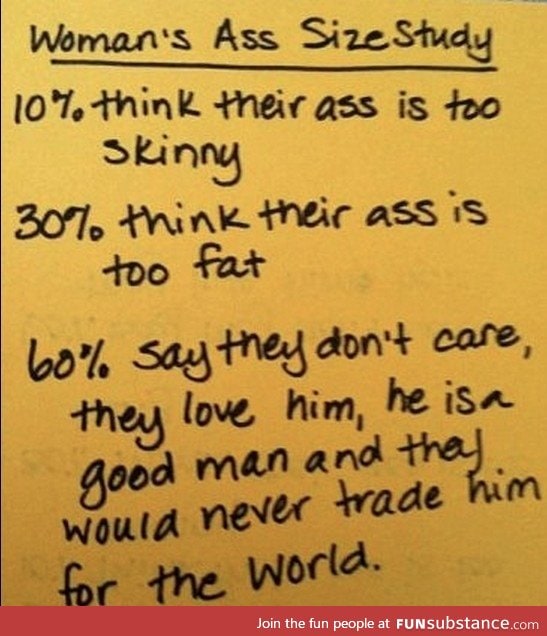 Woman's Ass Size Study
10% think their ass is too
skinny
30% think their ass is
too fat
60% say they don't care,
they love him, he is a
good man and they
would never trade him
for the world.
Join the fun people at FUNsubstance.com